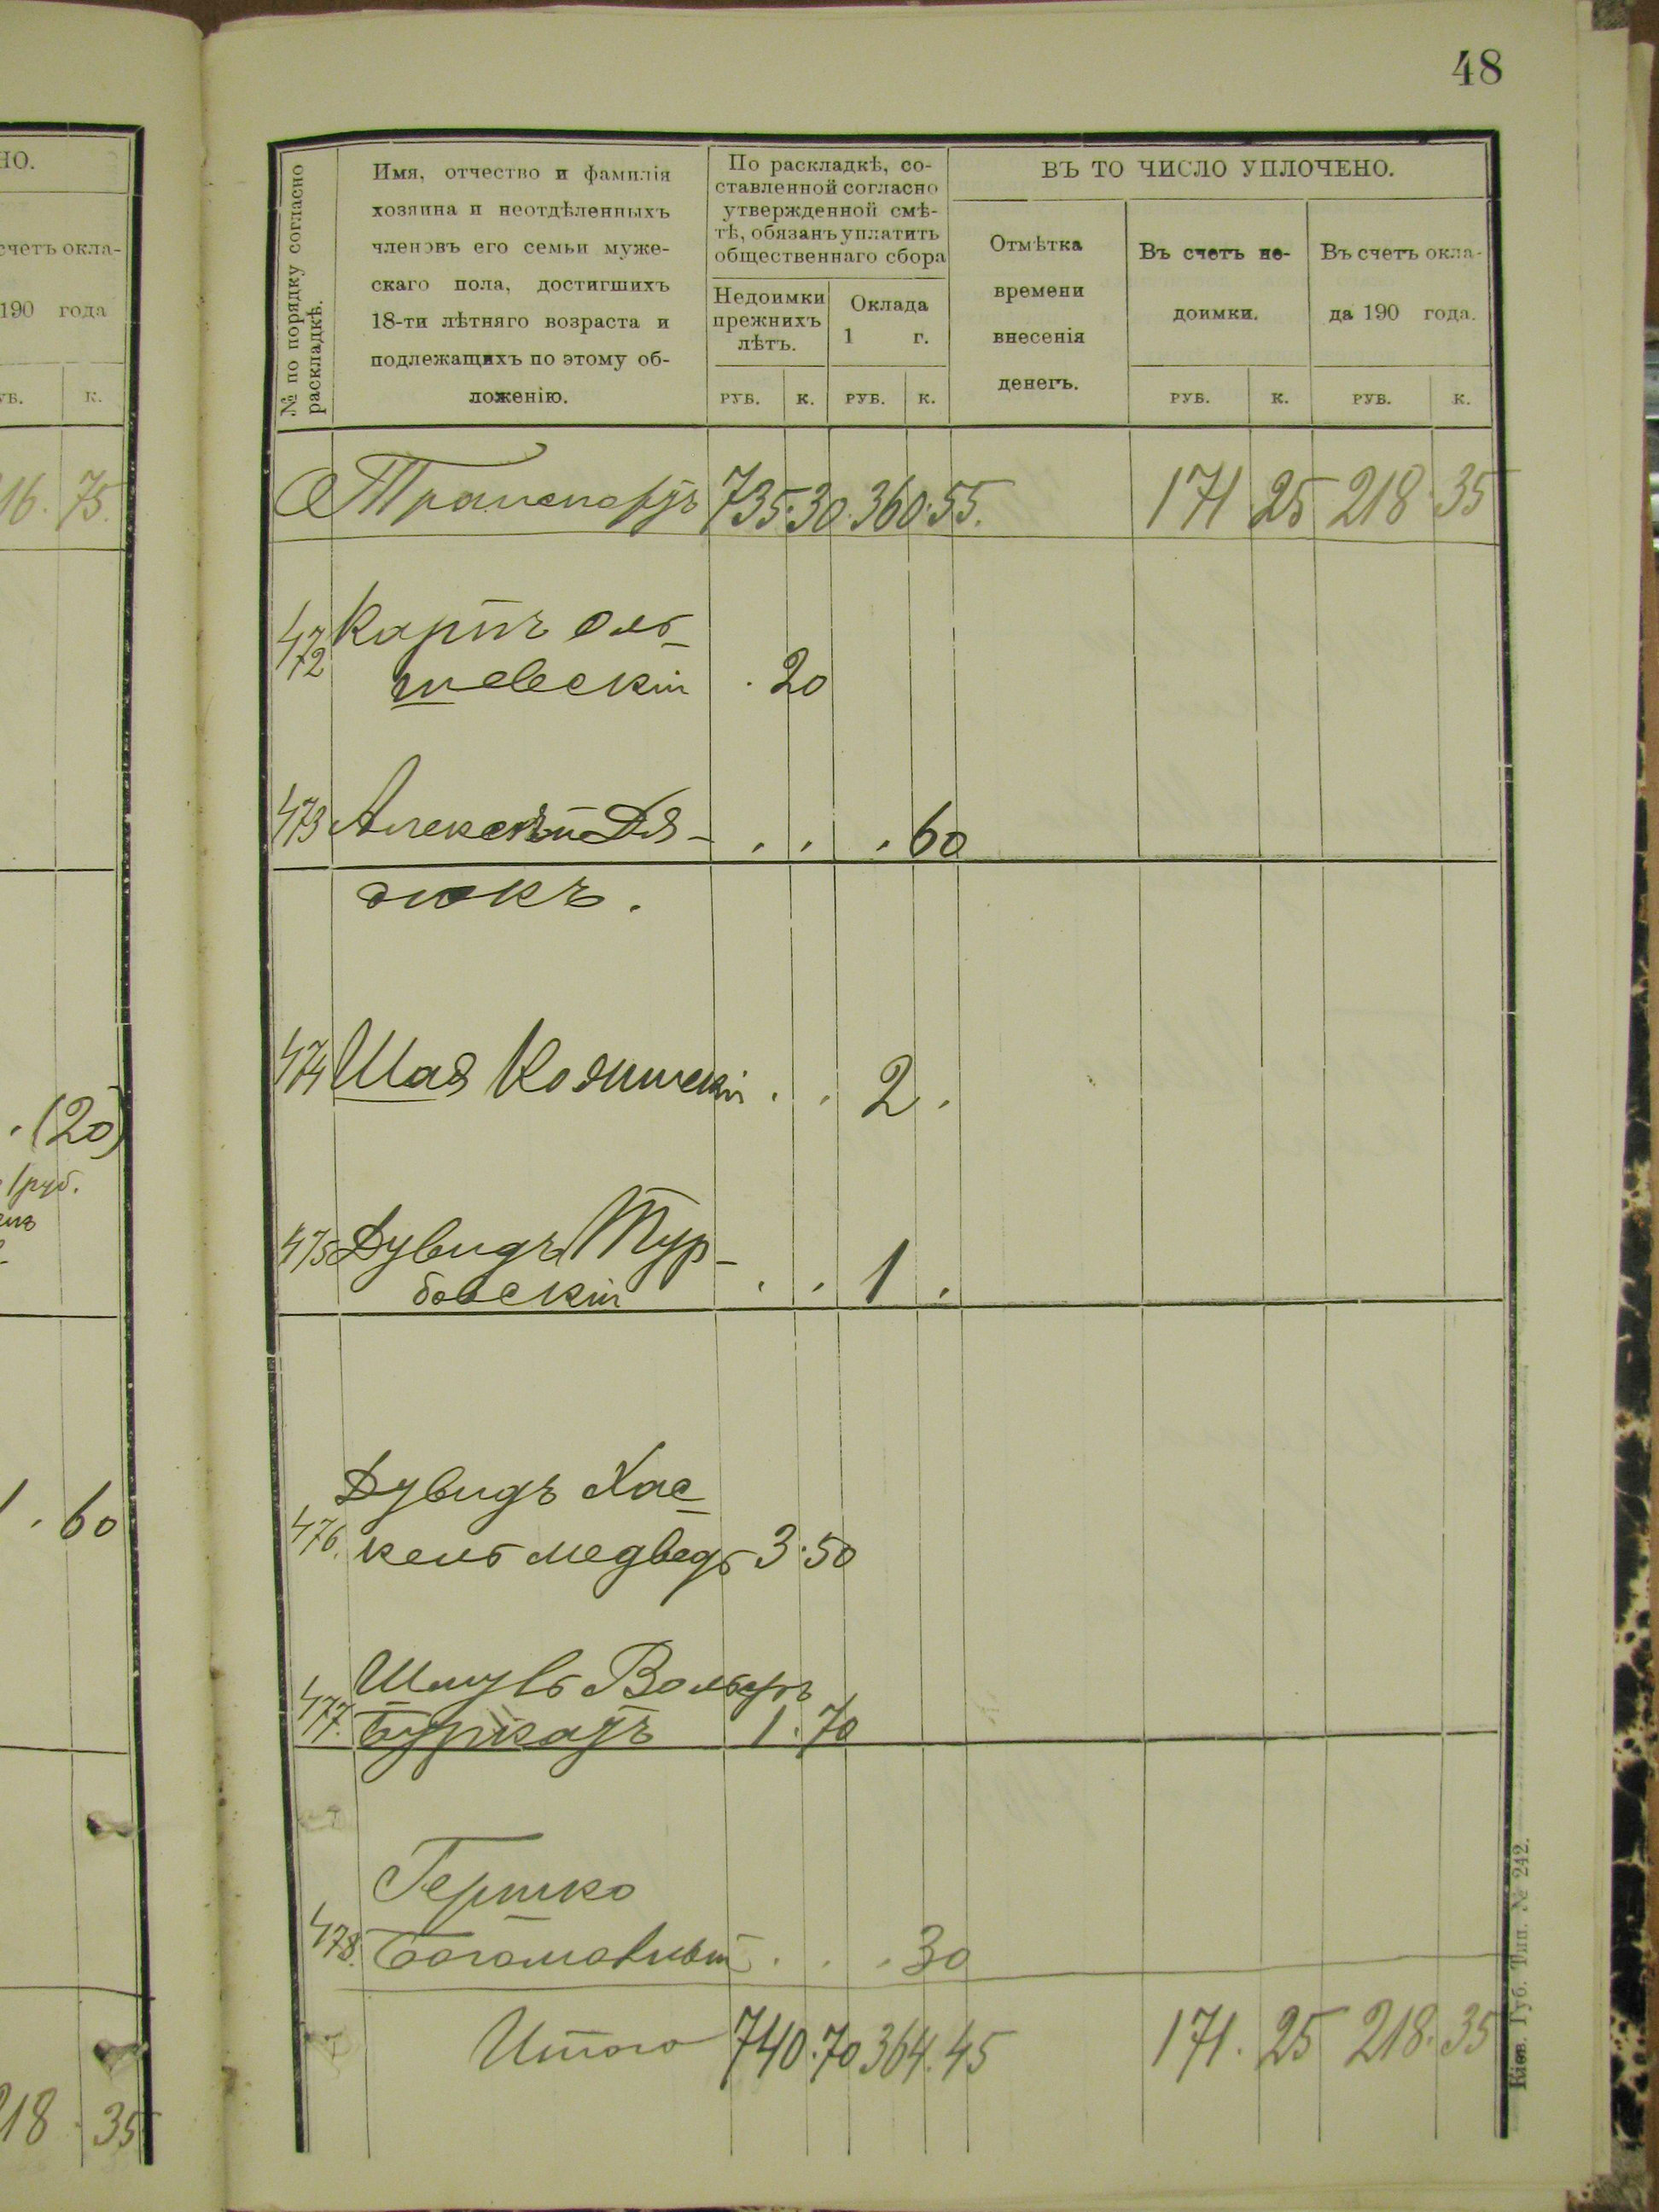 48
НО.
счетъ окла-
190 года
УБ. К.
16. 75.
. (20)
1 руб.
1 . 60
218 . 35
№ по порядку согласно
раскладкѣ.
Имя, отчество и фамилія
хозяина и неотдѣленныхъ
членовъ его семьи муже-
скаго пола, достигшихъ
18-ти лѣтняго возраста и
подлежащихъ по этому об-
ложенію.
По раскладкѣ, со-
ставленной согласно
утвержденной смѣ-
тѣ, обязанъ уплатить
общественнаго сбора
Недоимки
прежнихъ
лѣтъ.
Оклада
1 г.
РУБ. К. РУБ. К.
ВЪ ТО ЧИСЛО УПЛОЧЕНО.
Отмѣтка
времени
внесенія
денегъ.
Въ счетъ не-
доимки.
РУБ. К.
Въ счетъ окла-
да 190 года.
РУБ. К.
Транспортъ 735.30. 360.55. 171 25 218.35
472 Карпъ Оль-
шевскій . 20
473 Алексѣй Дя- . . . 60
дюкъ.
474 Шая . . 2 .
475 Дувидъ Тур-
бовскій . . 1 .
Дувидъ Хас-
476. кель Медведь 3.50
Шмуль Вольфъ
477. Буркатъ 1.70
Гершко
478. . . . 30
Итого 740.70 364.45 171. 25 218.35
Кіев. Губ. Тип. № 242.